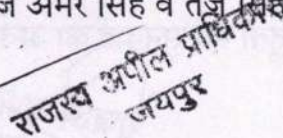 ज अमर सिंह व तेज सिंह
राजस्व अपील प्राधिकरण
जयपुर